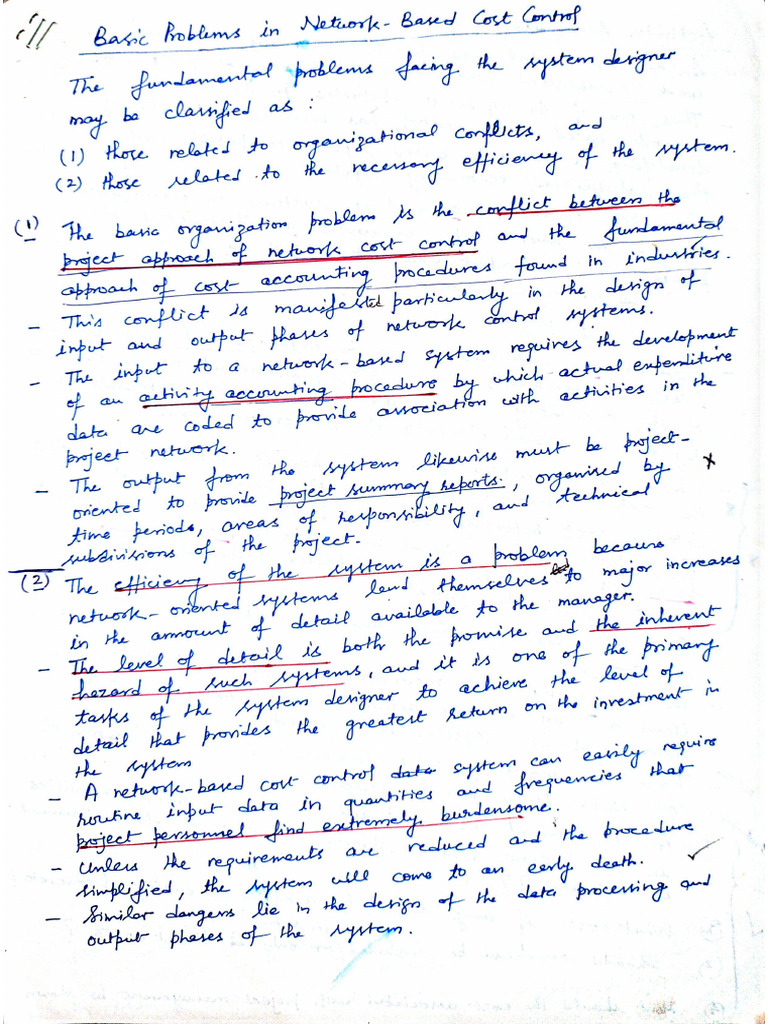 Basic Problems in Network-Based Cost Control
The fundamental problems facing the system designer
may be classified as :
(1) those related to organizational conflicts, and
(2) those related to the necessary efficiency of the system.
(1) The basic organization problem is the conflict between the
project approach of network cost control and the fundamental
approach of cost accounting procedures found in industries.
- This conflict is manifested particularly in the design of
input and output phases of network control systems.
- The input to a network-based system requires the development
of an activity accounting procedure by which actual expenditure
data are coded to provide association with activities in the
project network.
- The output from the system likewise must be project-
oriented to provide project summary reports, organised by
time periods, areas of responsibility, and technical
subdivisions of the project.
(2) The efficiency of the system is a problem because
network-oriented systems lend themselves to major increases
in the ammount of detail available to the manager.
- The level of detail is both the promise and the inherent
hazard of such systems, and it is one of the primary
tasks of the system designer to achieve the level of
detail that provides the greatest return on the investment in
the system
- A network-based cost control data system can easily require
routine input data in quantities and frequencies that
project personnel find extremely burdensome.
- Unless the requirements are reduced and the procedure
simplified, the system will come to an early death.
- Similar dangers lie in the design of the data processing and
output phases of the system.